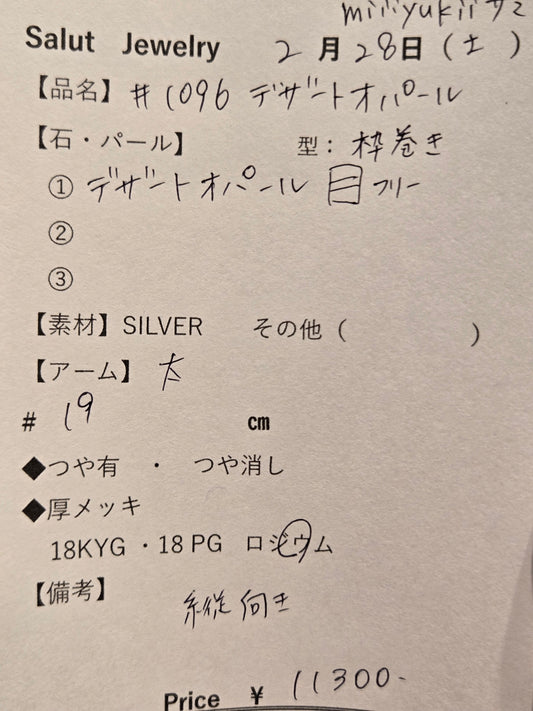 miiiyukiiサミ
Salut Jewelry 2月28日(土 )
【品名】#1096 デザートオパール
【石・パール】 型: 枠巻き
① デザートオパール フリー
②
③
【素材】SILVER その他( )
【アーム】太
# 19 cm
◆つや有 ・ つや消し
◆厚メッキ
18KYG ・18 PG ロジウム
【備考】
縦向き
Price ¥ 11300-